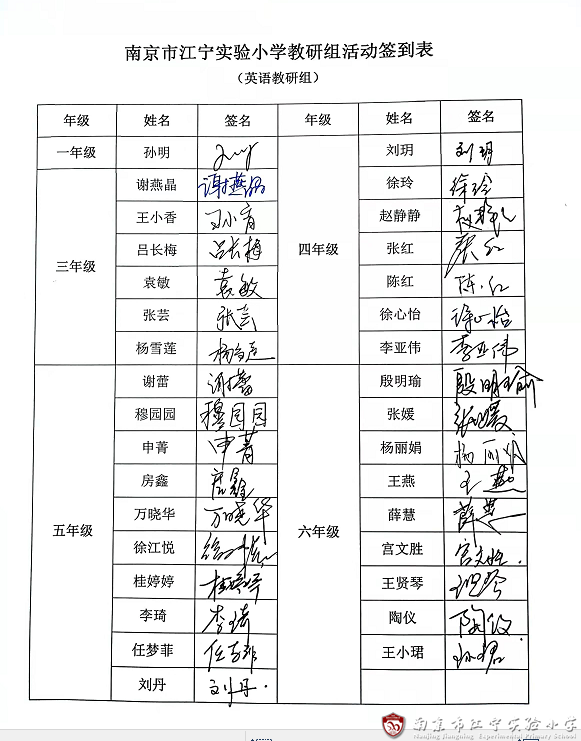 南京市江宁实验小学教研组活动签到表
（英语教研组）
年级 姓名 签名 年级 姓名 签名
一年级 孙明 四年级 刘玥 刘玥
三年级 谢燕晶 谢燕晶 徐玲 徐玲
王小香 王小香 赵静静 赵静静
吕长梅 吕长梅 张红 张红
袁敏 袁敏 陈红 陈红
张芸 张芸 徐心怡 徐心怡
杨雪莲 杨雪莲 李亚伟 李亚伟
五年级 谢蕾 谢蕾 六年级 殷明瑜 殷明瑜
穆园园 穆园园 张媛 张媛
申菁 申菁 杨丽娟 杨丽娟
房鑫 房鑫 王燕 王燕
万晓华 万晓华 薛慧 薛慧
徐江悦 宫文胜 宫文胜
桂婷婷 桂婷婷 王贤琴
李琦 李琦 陶仪 陶仪
任梦菲 任梦菲 王小珺
刘丹 刘丹
南京市江宁实验小学
Nanjing Jiangning Experimental Primary School